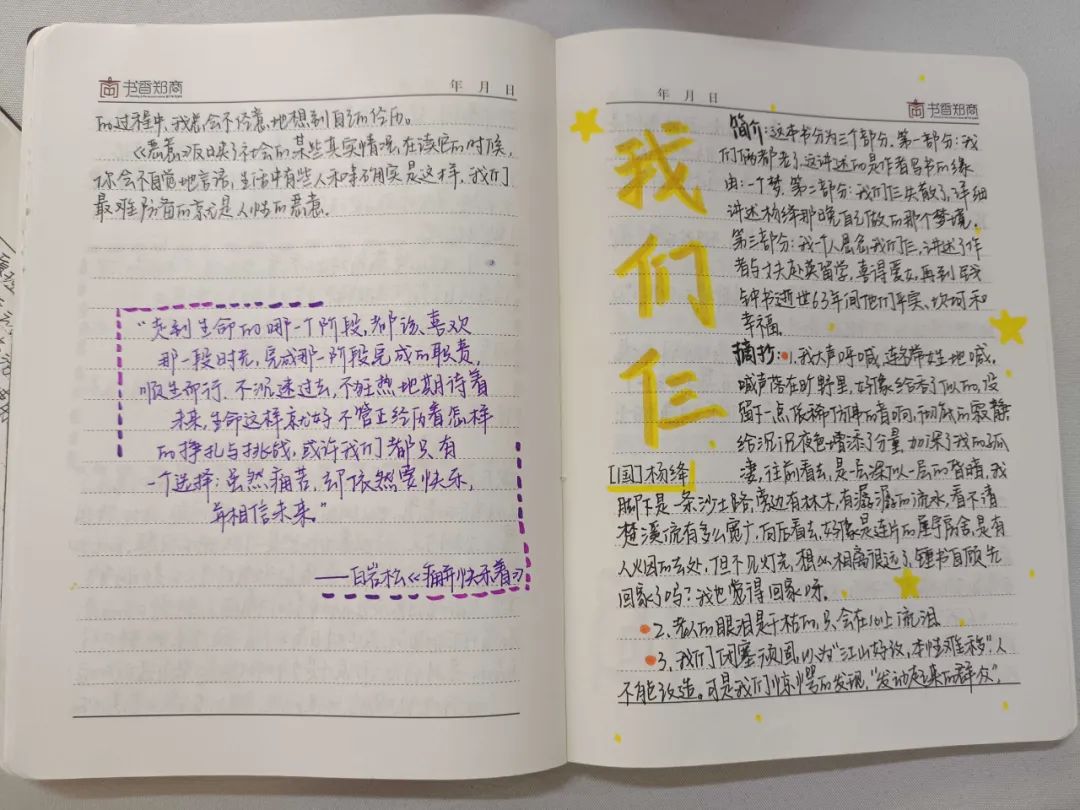 书香知商
年 月 日
的过程中,我总会不经意地想到自己的经历。
《恶意》反映了社会的某些真实情况,在读它的时候,
你会不自觉地言语,生活中有些人和事确实是这样,我们
最难防备的就是人性的恶意。
“走到生命的哪一个阶段,都该喜欢
那一段时光,完成那一阶段完成的职责,
顺生所行,不沉迷过去,不狂热地期待着
未来,生命这样就好 不管正经历着怎样
的挣扎与挑战,或许我们都只有
一个选择:虽然痛苦,却依然要快乐,
并相信未来。”
——白岩松《痛并快乐着》
年 月 日
书香知商
我们仨
[国]杨绛
简介:这本书分为三个部分。第一部分:我
们俩都老了,这讲述的是作者写书的缘
由:一个梦。第二部分:我们仨失散了,详细
讲述杨绛那晚自己做的那个梦境。
第三部分:我一个人思念我们仨,讲述了作
者与丈夫赴英留学,喜得爱女,再到
钟书逝世63年间他们平实、坎坷和
幸福。
摘抄:1.我大声呼喊,连名带姓地喊。
喊声落在旷野里,好像给吞了似的,没
留下一点依稀仿佛的音响,彻底的寂静
给沉沉夜色增添了分量,加深了我的孤
凄,往前看去,是一层深似一层的昏暗,我
脚下是一条沙土路,旁边有林木,有潺潺的流水,看不清
楚溪流有多么宽广,向后看去,好像是连片的屋宇房舍,是有
人烟的去处,但不见灯光,想必相离很远了,锺书自顾先
回家了吗?我也觉得回家呀。
2.老人的眼泪是干枯的,只会在心上流泪
3.我们闭塞顽固,以为“江山好改,本性难移”,人
不能改造。可是我们惊愕的发现,“发动起来的群众”,